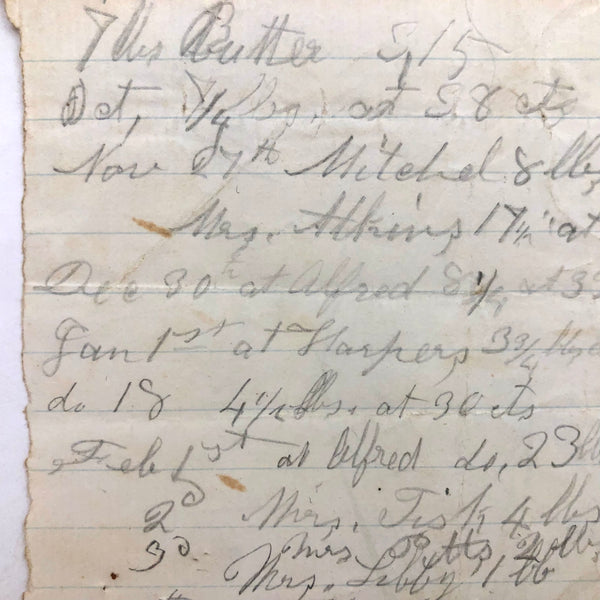 7 lbs Butter $,15
Oct, 7/4 lbs. at 28 cts
Nov 27th Mitchel 8 lbs
Mrs. Atkins, 17 1/4 at
Dec 30th at Alfred 8 1/4 at 3
Jan 1st at Harpers, 3 3/4 lbs
do 18 4 1/2 lbs. at 30 cts
Feb 1st at Alfred do, 23 lb
2d Mrs. Fisk 4 lbs
3d Mrs Potts, lb
Mrs. Libby 1 lb